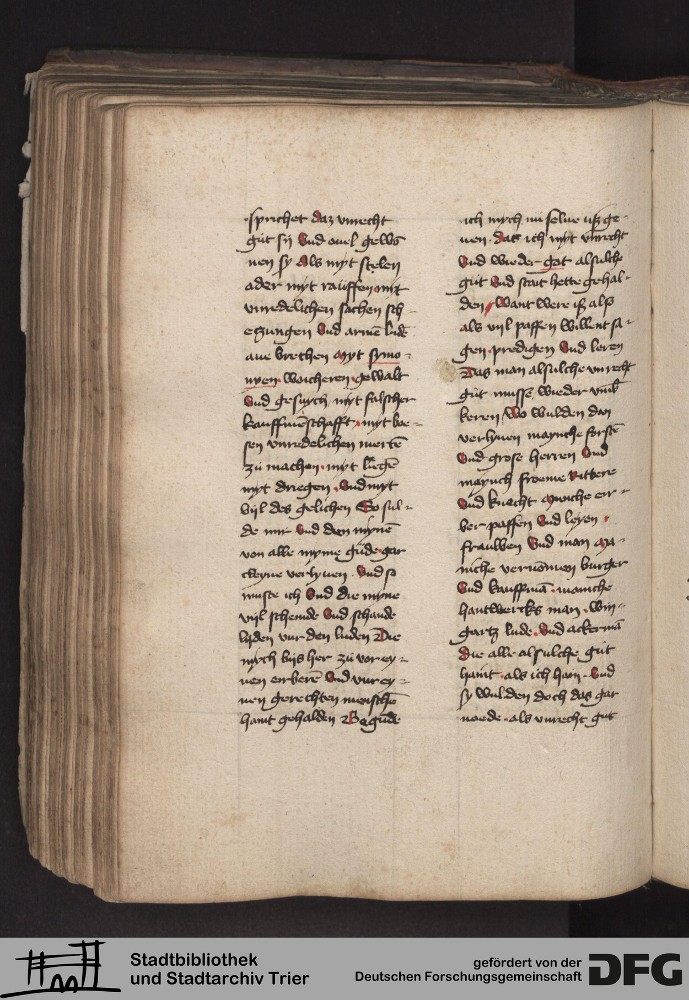 sprichet daz vnrecht
gut sij Vnd ouel gewū
nen sy Als myt stelen
ader myt rauffen myt
vnredelichen sachen sch
Vnd armē lude
myt symo-
nyen. woicheren. gewalt
Vnd gesuych myt falscher
kauffmēschafft. myt boe-
sen vnredelichen werckē
zü machen. myt liegē
myt driegen. Vnd myt
vijl des gelichen So sul-
de mir Vnd den mynē
von alle myme gude gar
cleyne verlyuen. Vnd so
muste ich Vnd die myne
vijl schemde Vnd schande
lijden vur den luden Die
mych bijs her zü vor ey-
nen erberē Vnd vur ey-
nen gerechten menschē
haint gehalden
ich mych mi seluer ußge-
uen. dat ich myt vnrecht
Vnd wieder got alsulche
gut Vnd stait hette gehal-
den. Want were iß also
als vijl paffen willent sa-
gen. predigen Vnd leren
Das man alsulche vnrecht
gut musse wieder vmb
keren. Wo wulden dan
verlyuen maynche forstē
Vnd grose herren Vnd
maynch froeme Rittere
Vnd knecht Manche er-
ber paffen Vnd leyen.
frauwen Vnd man Ma-
niche vernomen burger
Vnd kauffmā. mainche
hantwercks man. wyn-
gartz lude. Vnd ackermā
Die alle alsulche gut
haint. als ich han. Vnd
sy wulden doch das gar
noede. als vnrecht gut
Stadtbibliothek
und Stadtarchiv Trier
gefördert von der
Deutschen Forschungsgemeinschaft
DFG